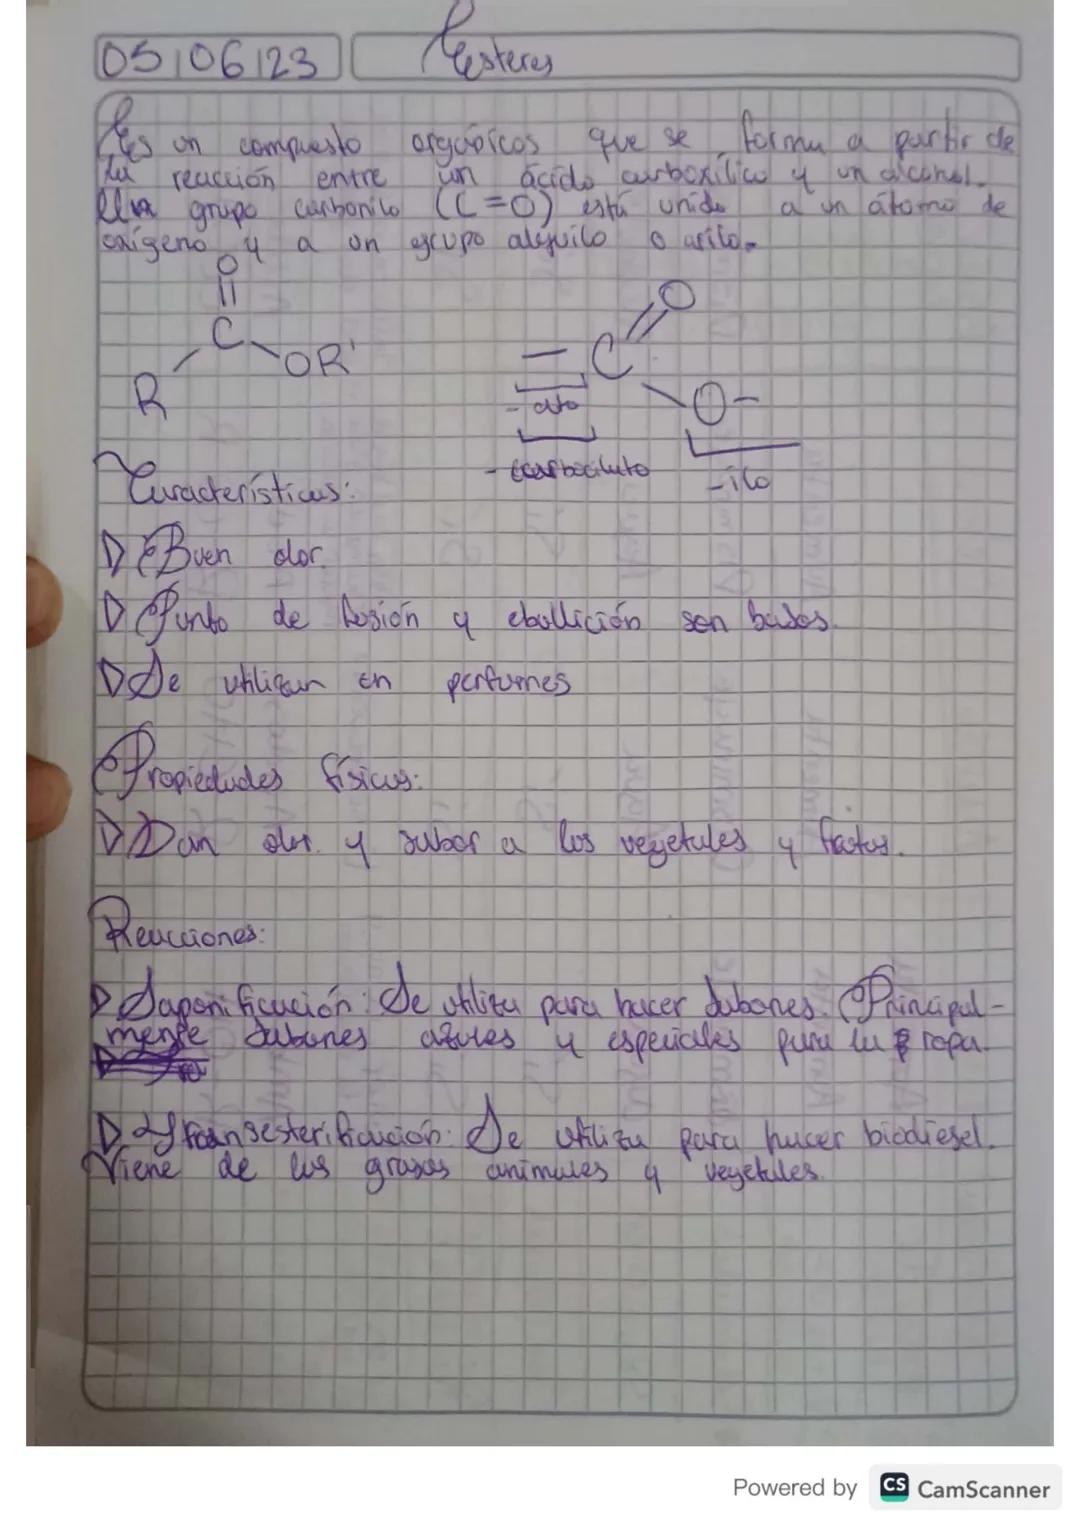 05/06/23 Esteres
Es un compuesto orgánicos que se forma a partir de
la reacción entre un ácido carboxílico y un alcohol.
Un grupo carbonilo (C=O) está unido a un átomo de
oxígeno y a un grupo alquilo o arilo.
O
C
OR'
R
O
C
O-
-ato
-carboxilato
-ilo
Características:
Buen olor.
Punto de fusión y ebullición son bajos.
Se utilizan en perfumes
Propiedades físicas:
Dan olor y sabor a los vegetales y frutas.
Reacciones:
Saponificación: Se utiliza para hacer jabones. (Principal-
mente jabones azules y especiales para la ropa.
Transesterificación: Se utiliza para hacer biodiesel.
Viene de las grasas animales y vegetales.
Powered by CS CamScanner